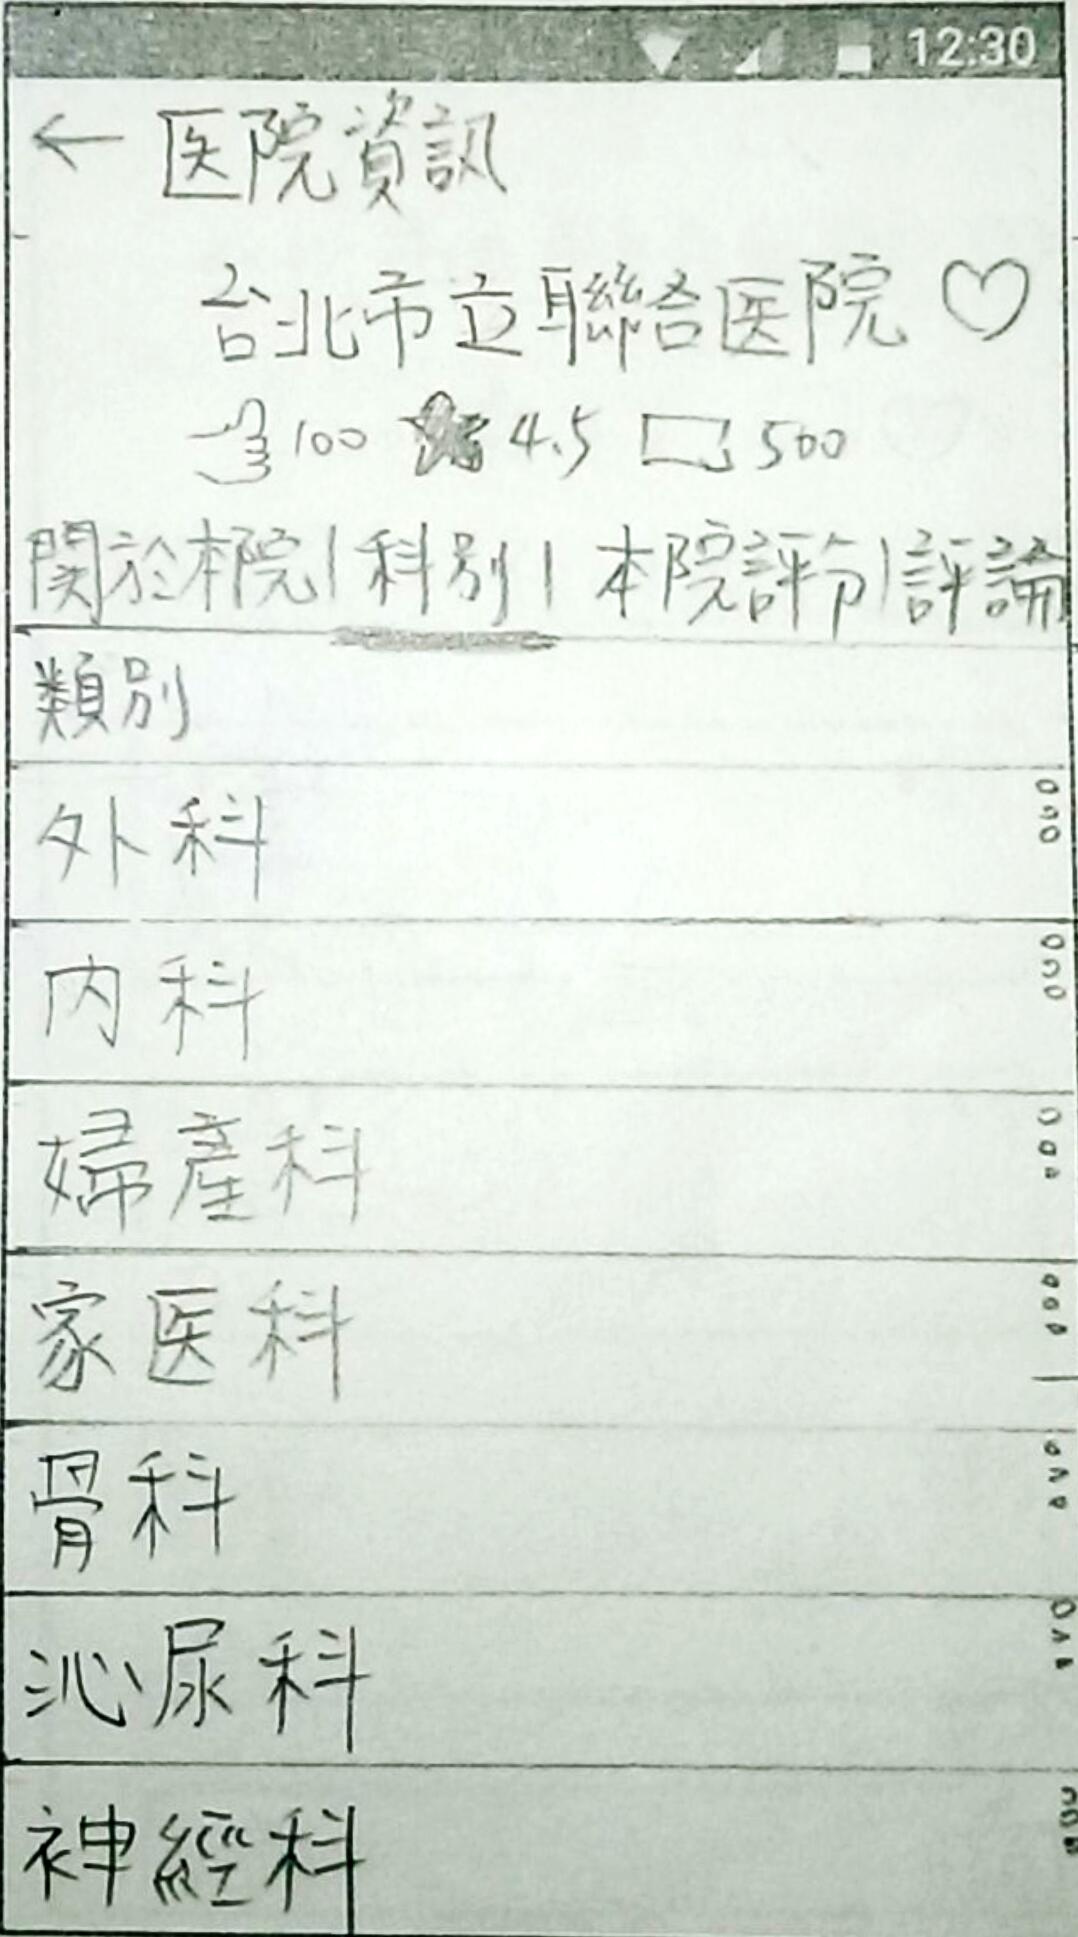 12:30
← 医院資訊
台北市立聯合医院 ♡
100 4.5 500
関於本院 | 科別 | 本院評分 | 評論
類別
外科
内科
婦產科
家医科
骨科
沁尿科
神經科